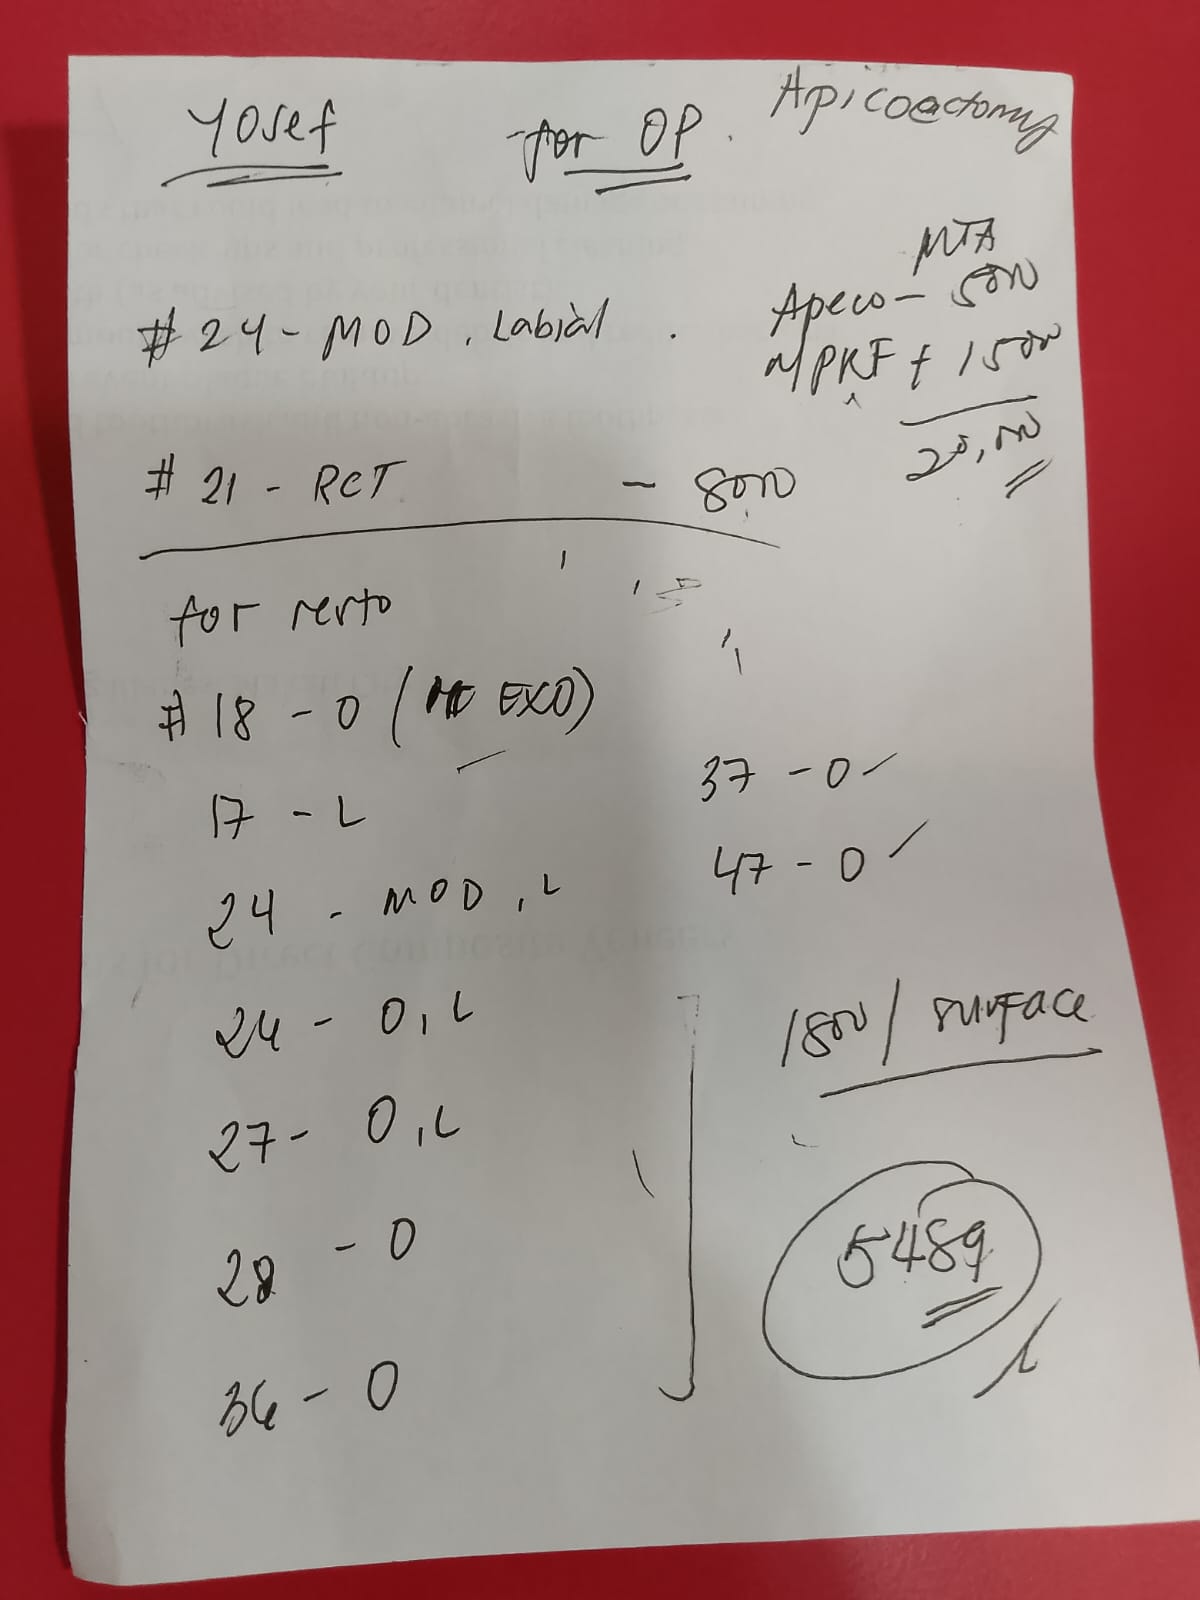 Yosef for OP. Apicoectomy
MTA
Apeco - 5000
PRF + 15000
20,000
# 24 - MOD, Labial
# 21 - RCT - 8000
for resto
# 18 - O ( EXO)
17 - L
24 - MOD, L
26 - O, L
27 - O, L
28 - O
36 - O
37 - O
47 - O
1800 / surface
5489